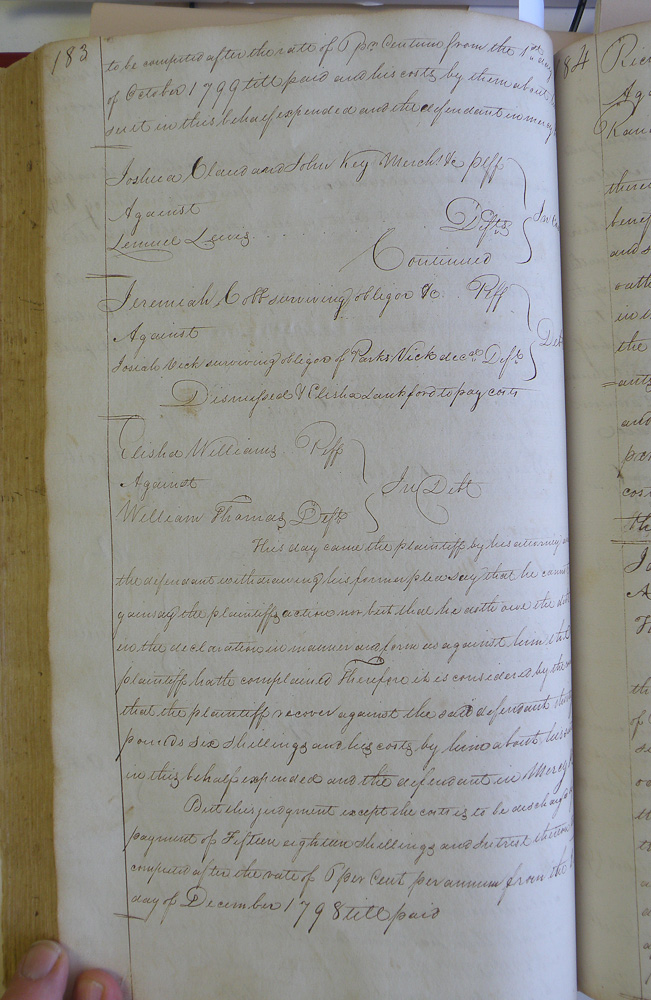 183
to be computed after the rate of 6 pr. Centum from the 1st day
of October 1799 till paid and his costs by them about
suit in this behalf expended and the defendant in mercy
Joshua Claud and John Key Merchts &c plff
Against
Lemuel Lewis Defts
Continued
Jeremiah Cobb surviving obligor &c. Plff
Against
Josiah Vick surviving obligor of Parks Vick decd. Deft
Dismissed & Elisha Lankford to pay costs
Elisha Williams Plff
Against In Debt
William Thomas Deft
This day came the plaintiff by his attorney
the defendant withdrawing his former plea say that he cannot
gainsay the plaintiffs action nor but that he doth owe the debt
in the declaration in manner and form as against him the
plaintiff hath complained Therefore it is considered by the
that the plaintiff recover against the said defendant
pounds six shillings and his costs by him about his
in this behalf expended and the defendant in Mercy
But this judgment except the costs is to be discharged
payment of Fifteen eighteen shillings and Intrist thereon
computed after the rate of 6 per Cent per annum from the
day of December 1798 till paid
184
Aga
and
the
and
the